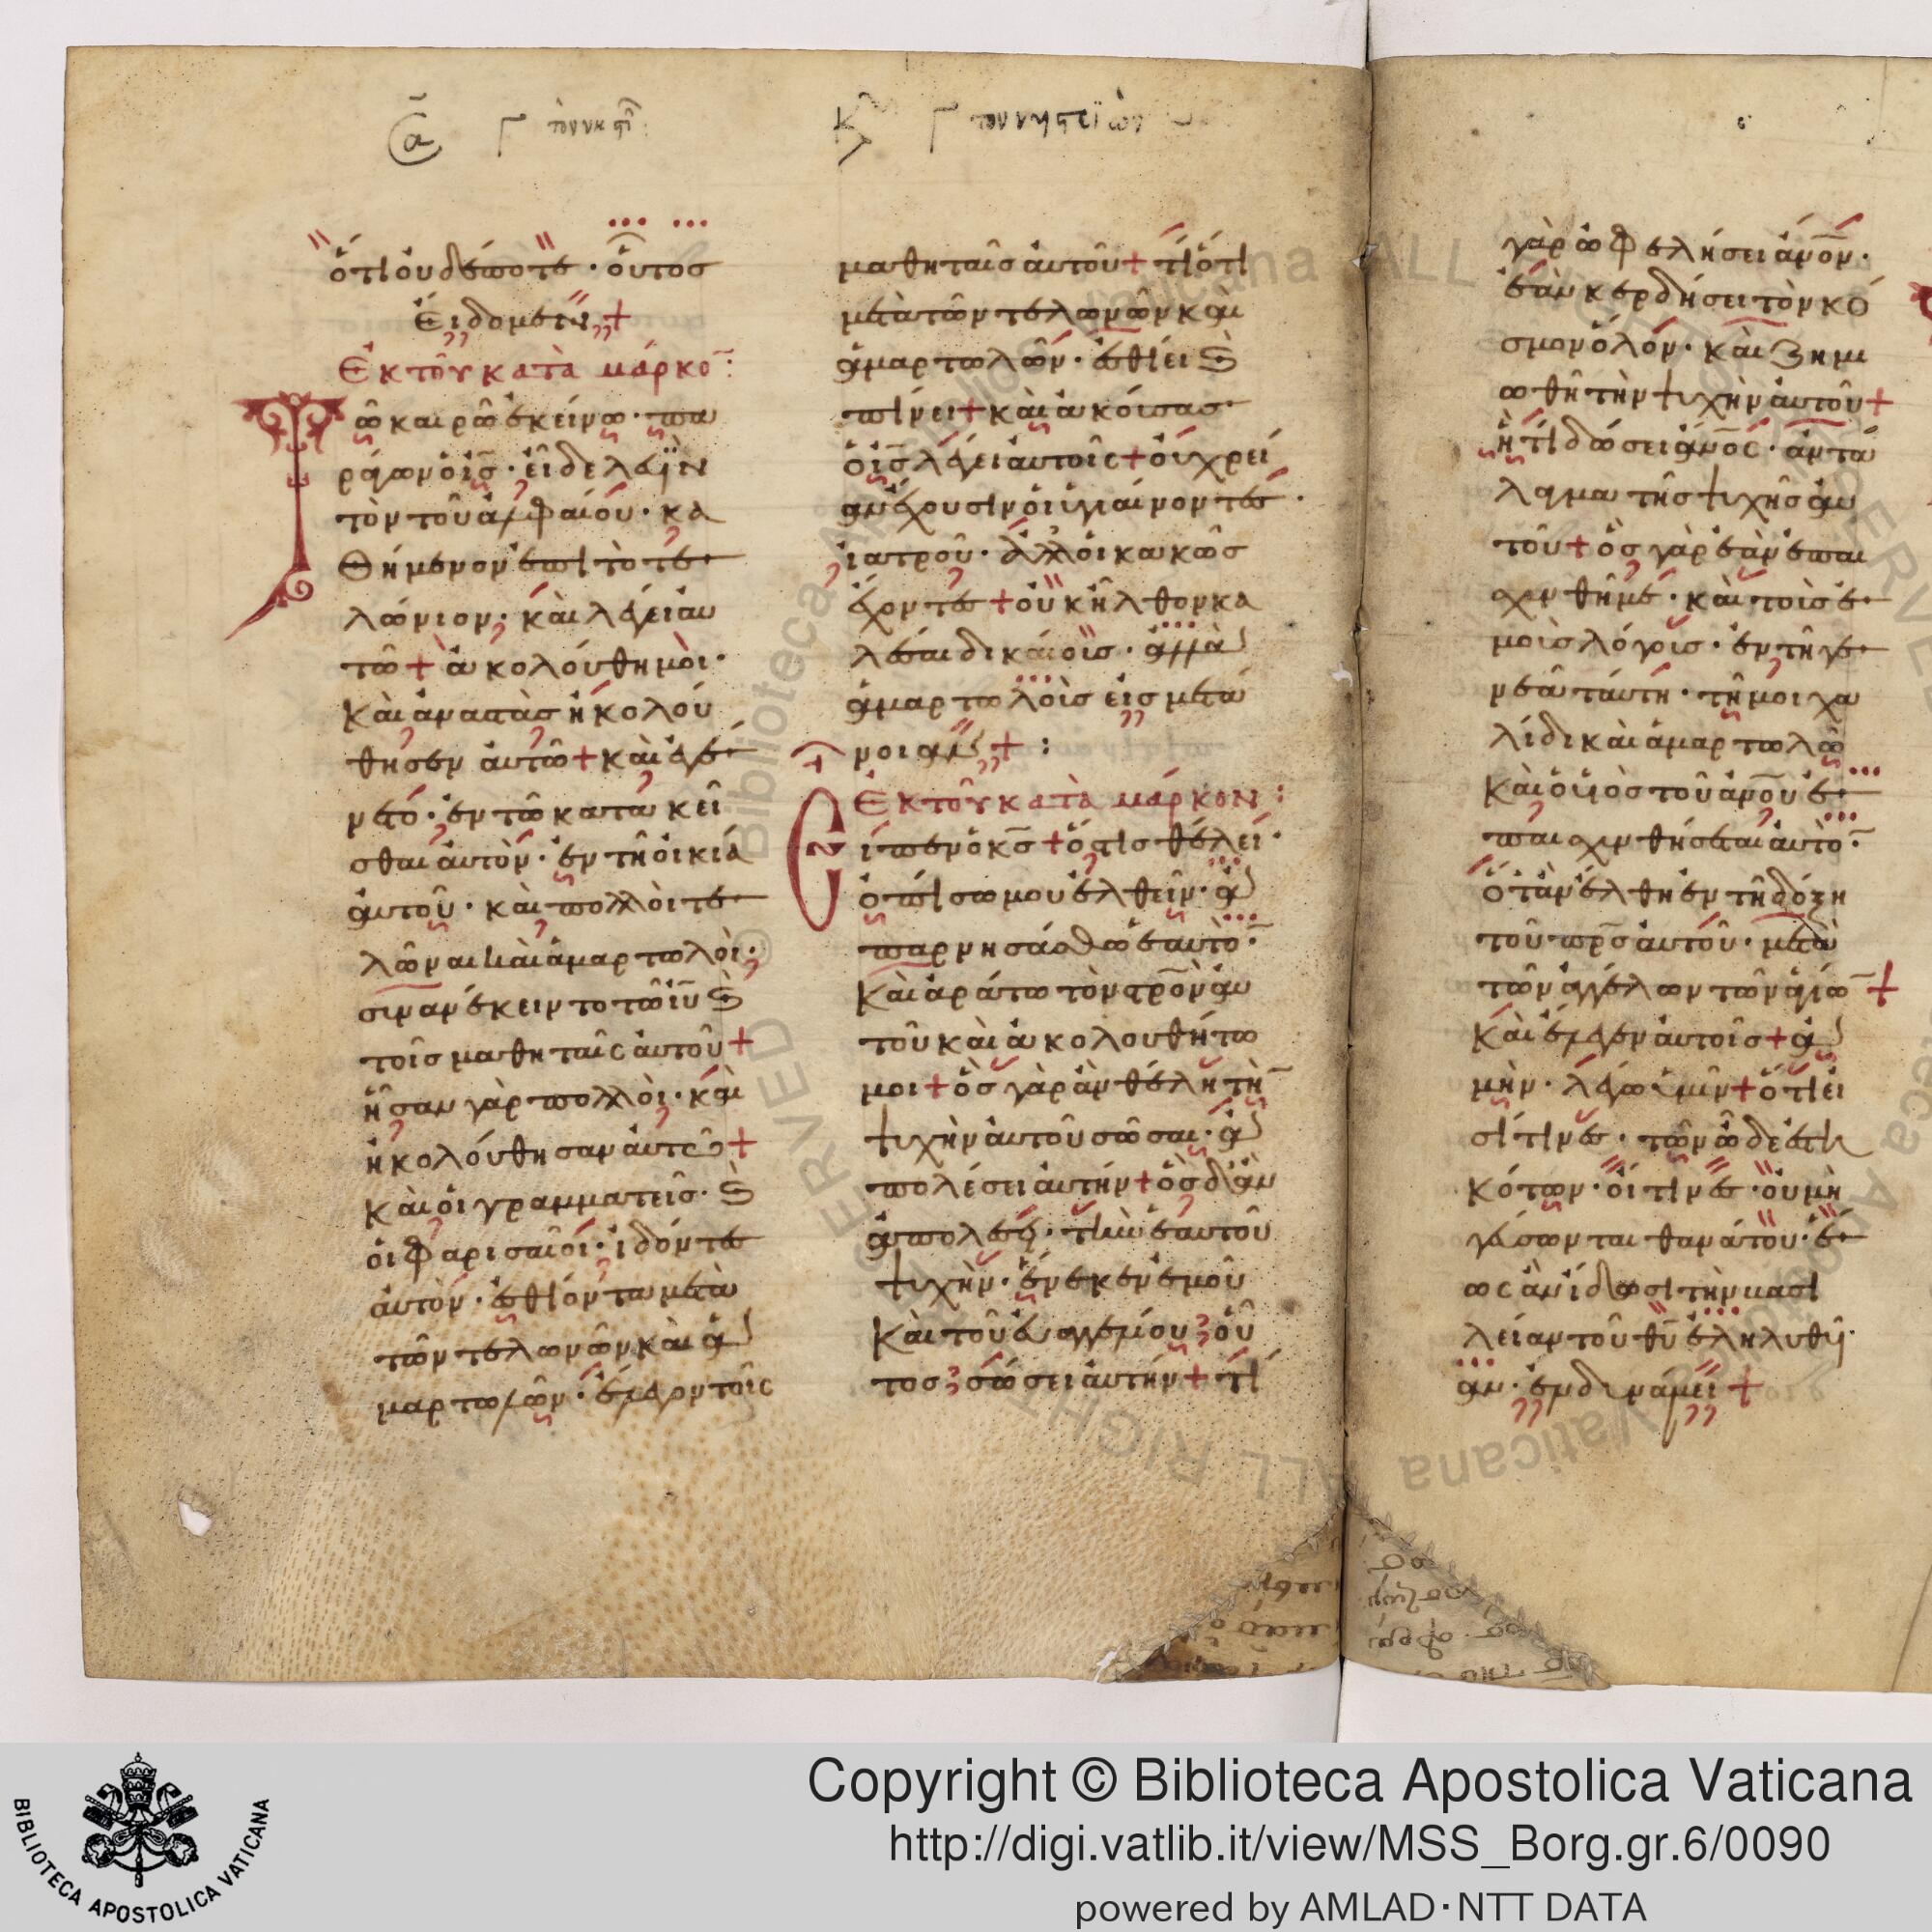 ὅτι οὐδέποτε · οὕτως
εἴδομεν +
Ἐκ τοῦ κατὰ μάρκο̅ :
Τῶ καιρῶ ἐκείνω · πα
ράγων ὁ ι̅ς̅ · εἶδε λευϊν
τὸν τοῦ ἀλφαίου · κα
θήμενον ἐπι τὸ τε
λώνιον · καὶ λέγει αυ
τῶ + ἀκολούθη μοι ·
Καὶ ἀναστὰς ἠκολού
θησεν αὐτῶ + καὶ ἐγέ
νετο · ἐν τῶ κατακεῖ
σθαι αὐτὸν · ἐν τῆ οἰκία
αὐτοῦ · καὶ πολλοὶ τε
λῶναι καὶ ἁμαρτωλοὶ ·
συνανέκειντο τῶ ι̅υ̅ ϗ
τοῖς μαθηταῖς αὐτοῦ +
ἦσαν γὰρ πολλοὶ · καὶ
ἠκολούθησαν αὐτῶ +
Καὶ οἱ γραμματεῖς · ϗ
οἱ φαρισαῖοι · ἰδόντες
αὐτὸν · ἐσθίοντα μετὰ
τῶν τελωνῶν καὶ ἁ
μαρτωλῶν · ἔλεγον τοῖς
μαθηταῖς αὐτοῦ + τί ὅτι
μετὰ τῶν τελωνῶν καὶ
ἁμαρτωλῶν · ἐσθίει ϗ
πίνει + καὶ ἀκούσας
ὁ ι̅ς̅ λέγει αὐτοῖς + οὐ χρεί
αν ἔχουσιν οἱ ὑγιαίνοντες ·
ἰατροῦ · ἀλλ οἱ κακῶς
ἔχοντες + οὐκ ἦλθον κα
λέσαι δικαίους · ἀλλὰ
ἁμαρτωλοὺς εἰς μετά
νοιαν + :
Ἐκ τοῦ κατὰ μάρκον :
Εἶπεν ὁ κ̅ς̅ + ὅστις θέλει ·
ὀπίσω μου ἐλθεῖν · ἀ
παρνησάσθω ἑαυτὸ̅ ·
Καὶ ἀράτω τὸν σ̅ρ̅ο̅ν̅ αὐ
τοῦ καὶ ἀκολουθήτω
μοι + ὃς γὰρ ἂν θέλη τὴ̅
ψυχὴν αὐτοῦ σῶσαι · ἀ
πολέσει αὐτήν + ὃς δ ἂν
ἀπολέση · τὴν ἑαυτοῦ
ψυχὴν · ἕνεκεν ἐμοῦ
Καὶ τοῦ εὐαγγελίου · οὗ
τος · σώσει αὐτήν + τί
γὰρ ὠφελήσει α̅ν̅ο̅ν̅ ·
ἐὰν κερδήσει τὸν κό
σμον ὅλον · καὶ ζημι
ωθῆ τὴν ψυχὴν αὐτοῦ +
ἢ τί δώσει α̅ν̅ο̅ς̅ · ἀντά
λαγμα τῆς ψυχῆς αὐ
τοῦ + ὃς γὰρ ἐὰν ἐπαι
σχυνθῆ με · καὶ τοὺς ἐ
μοὺς λόγους · ἐν τῆ γε
νεᾶ ταύτη · τῆ μοιχα
λίδι καὶ ἁμαρτωλῶ
Καὶ ὁ υἱὸς τοῦ α̅ν̅ο̅υ̅ ἐ
παισχυνθήσεται αὐτὸ̅ ·
ὅταν ἔλθη ἐν τῆ δόξη
τοῦ π̅ρ̅ς̅ αὐτοῦ · μετὰ
τῶν ἀγγέλων τῶν ἁγίω̅ +
Καὶ ἔλεγεν αὐτοῖς + ἀ
μὴν · λέγω ὑμῖν + ὅτι εἰ
σί τινες · τῶν ὧδε ἑστη
κότων · οἵτινες · οὐ μὴ
γεύσωνται θανάτου · ἕ
ως ἂν ἴδωσι τὴν βασι
λείαν τοῦ θ̅υ̅ ἐληλυθυῖ
αν · ἐν δυνάμει +
Copyright © Biblioteca Apostolica Vaticana
http://digi.vatlib.it/view/MSS_Borg.gr.6/0090
powered by AMLAD·NTT DATA
BIBLIOTECA APOSTOLICA VATICANA